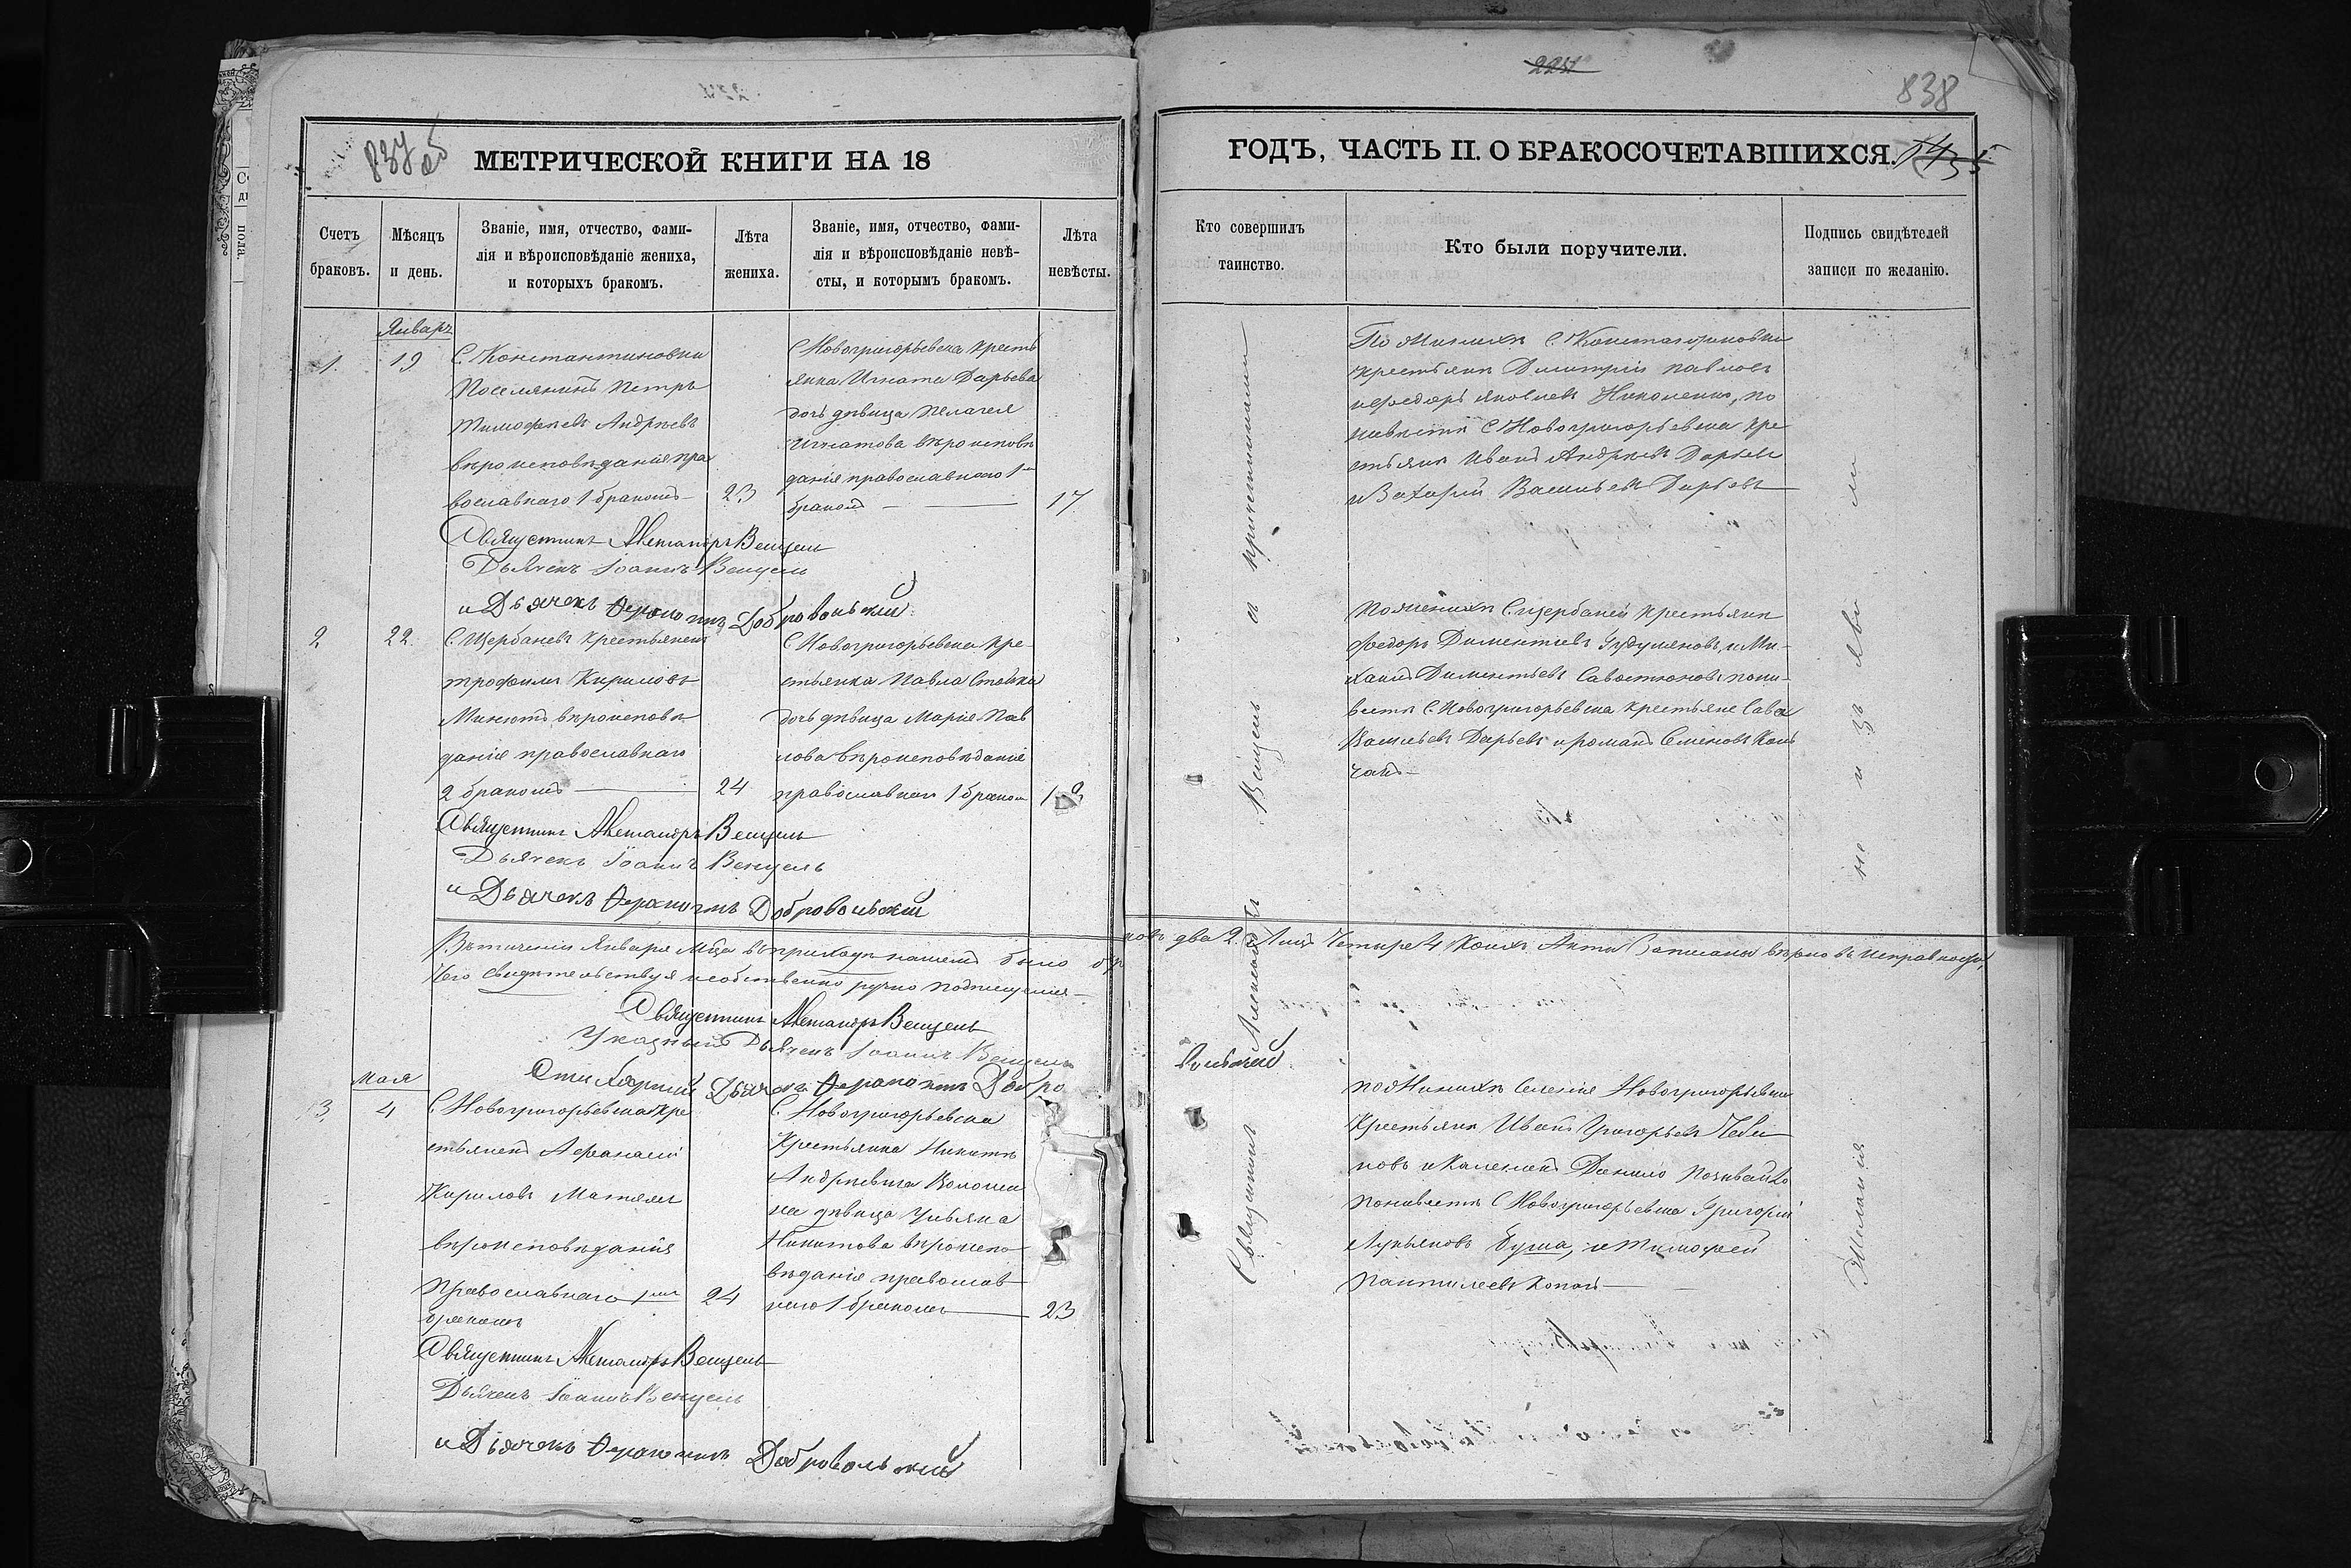 837 об
МЕТРИЧЕСКОЙ КНИГИ НА 18
Счетъ браковъ.
Мѣсяцъ и день.
Званіе, имя, отчество, фами-
лія и вѣроисповѣданіе жениха,
и которыхъ бракомъ.
Лѣта жениха.
Званіе, имя, отчество, фами-
лія и вѣроисповѣданіе невѣ-
сты, и которымъ бракомъ.
Лѣта невѣсты.
Январь
1.
19
С. Константиновки
Поселянинъ Петръ
Тимофеевъ Андреевъ
вѣроисповѣданія пра
вославнаго 1 бракомъ
23
С Новогригорьевка кресть
янка Игната Дарьева
дочь дѣвица Пелагея
Игнатова вѣроисповѣ
данія православнаго 1
бракомъ
17
Священникъ Александръ Венцель
Дьячекъ Іоаннъ Венцель
и Дьячекъ Ферапонтъ Добровольскій
2
22.
С. Щербаневъ крестьянинъ
трофимъ Кириловъ
вѣроисповѣ
данія православнаго
2 бракомъ
24
С Новогригорьевка кре
стьянка Павла Стойка
дочь дѣвица Марія Пав
лова вѣроисповѣданія
православнаго 1 бракомъ
Священникъ Александръ Венцель
Дьячекъ Іоаннъ Венцель
и Дьячекъ Ферапонтъ Добровольскій
Въ теченіи Января Мѣца въ приходѣ нашемъ было бра
ковъ два 2. Лицъ Четыре 4 Коихъ Акты Записаны вѣрно въ исправности,
чего свидѣтельствуя собственно ручно подписуемся
Священникъ Александръ Венцель
Указный Дьячекъ Іоаннъ Венцель
Стихарный Дьячекъ Ферапонтъ Добро
вольскій
Мая
3,
4
С Новогригорьевка кре
стьянинъ Афанасій
Кириловъ
вѣроисповѣданія
Православнаго 1мъ
бракомъ
24
С. Новогригорьевка
Крестьянка Никиты
Андреевича Волоши
на дѣвица Ульяна
Никитова вѣроиспо
вѣданія православ
наго 1 бракомъ
23
Священникъ Александръ Венцель
Дьячекъ Іоаннъ Венцель
и Дьячекъ Ферапонтъ Добровольскій
838
ГОДЪ, ЧАСТЬ II. О БРАКОСОЧЕТАВШИХСЯ.
Кто совершилъ таинство.
Кто были поручители.
Подпись свидѣтелей
записи по желанію.
Священникъ Александръ Венцель
По Женихѣ С. Константиновки
крестьяне Димитрій Павловъ
и Федоръ Яковлевъ Николенко, по
невѣстѣ С Новогригорьевка кре
стьяне Иванъ Андреевъ Дарьевъ
и Захарій Васильевъ Дарьевъ
по женихѣ С. Щербаней крестьяне
Федоръ Дементьевъ и Ми-
хаилъ Дементьевъ Савостюновъ по не-
вѣстѣ С. Новогригорьевка крестьяне Сава
Васильевъ Дарьевъ и романъ Семеновъ Кол
чанъ
по Женихѣ Селенія Новогригорьевка
Крестьяне Иванъ Григорьевъ
новъ и Данило
По невѣстѣ С Новогригорьевка Григорій
Лукьяновъ Буша, и Тимофей
Пантилеевъ
Желанія не изъявили